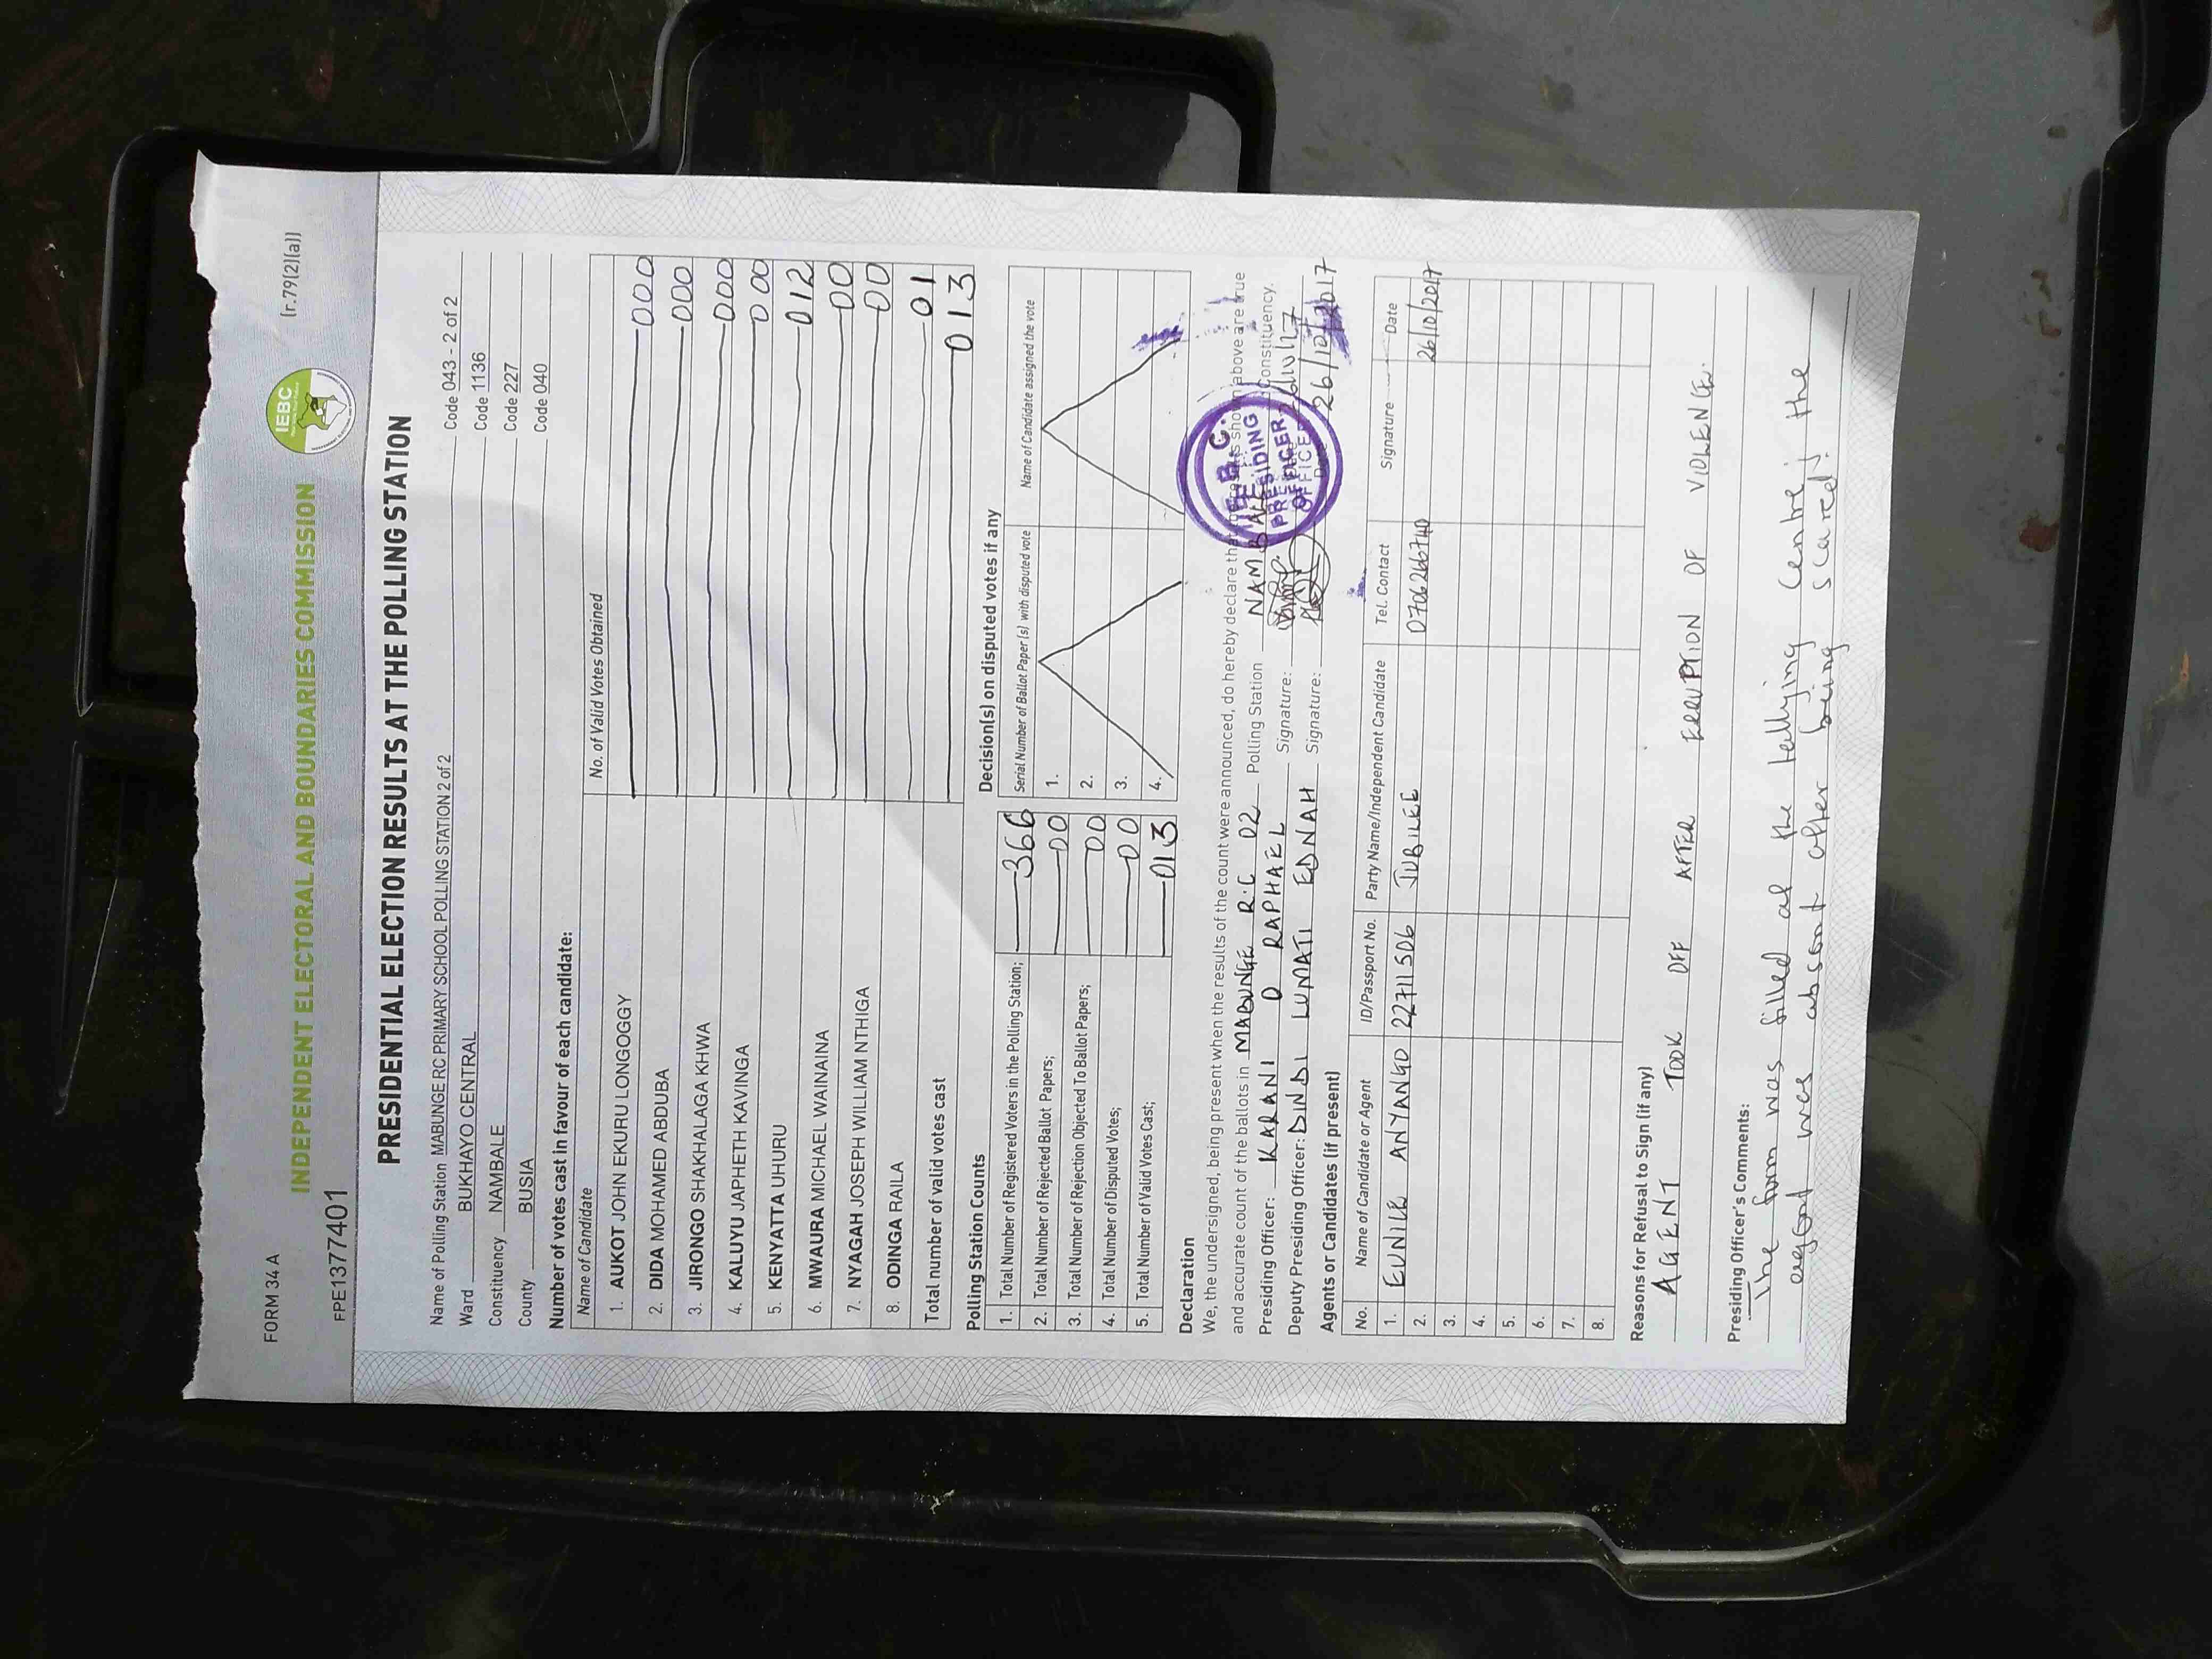 FORM 34 A
(r.79(2)(a))
INDEPENDENT ELECTORAL AND BOUNDARIES COMMISSION
IEBC
FPE1377401
PRESIDENTIAL ELECTION RESULTS AT THE POLLING STATION
Name of Polling Station MABUNGE RC PRIMARY SCHOOL POLLING STATION 2 of 2 Code 043 - 2 of 2
Ward BUKHAYO CENTRAL Code 1136
Constituency NAMBALE Code 227
County BUSIA Code 040
Number of votes cast in favour of each candidate:
Name of Candidate No. of Valid Votes Obtained
1. AUKOT JOHN EKURU LONGOGGY 000
2. DIDA MOHAMED ABDUBA 000
3. JIRONGO SHAKHALAGA KHWA 000
4. KALUYU JAPHETH KAVINGA 000
5. KENYATTA UHURU 012
6. MWAURA MICHAEL WAINAINA 00
7. NYAGAH JOSEPH WILLIAM NTHIGA 00
8. ODINGA RAILA 01
Total number of valid votes cast 013
Polling Station Counts
1. Total Number of Registered Voters in the Polling Station; 366
2. Total Number of Rejected Ballot Papers; 00
3. Total Number of Rejection Objected To Ballot Papers; 00
4. Total Number of Disputed Votes; 00
5. Total Number of Valid Votes Cast; 013
Decision(s) on disputed votes if any
Serial Number of Ballot Paper(s) with disputed vote Name of Candidate assigned the vote
1.
2.
3.
4.
Declaration
We, the undersigned, being present when the results of the count were announced, do hereby declare that shown above are true
and accurate count of the ballots in MABUNGE R.C 02 Polling Station NAMBALE Constituency.
Presiding Officer: KARANI O RAPHAEL Signature: 26/10/17
Deputy Presiding Officer: DINDI LUMATI EDNAH Signature: 26/10/2017
I.E.B.C.
PRESIDING
OFFICER
Agents or Candidates (if present)
No. Name of Candidate or Agent ID/Passport No. Party Name/Independent Candidate Tel. Contact Signature Date
1. EUNICE ANYANGO 22711506 JUBILEE 0706266740 26/10/2017
2.
3.
4.
5.
6.
7.
8.
Reasons for Refusal to Sign (if any)
AGENT TOOK OFF AFTER ERRUPTION OF VIOLENCE.
Presiding Officer's Comments:
The form was filled at the tallying centre; the
agent was absent after being scared.